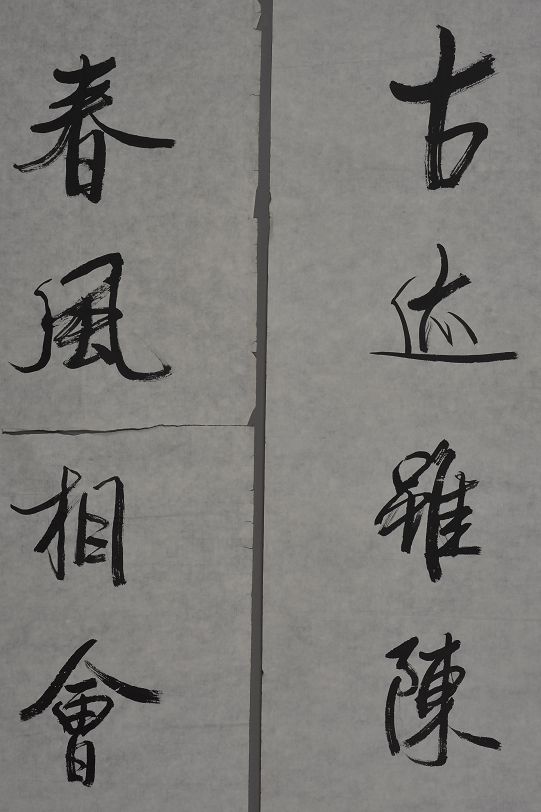 古迹雖陳
春風相會